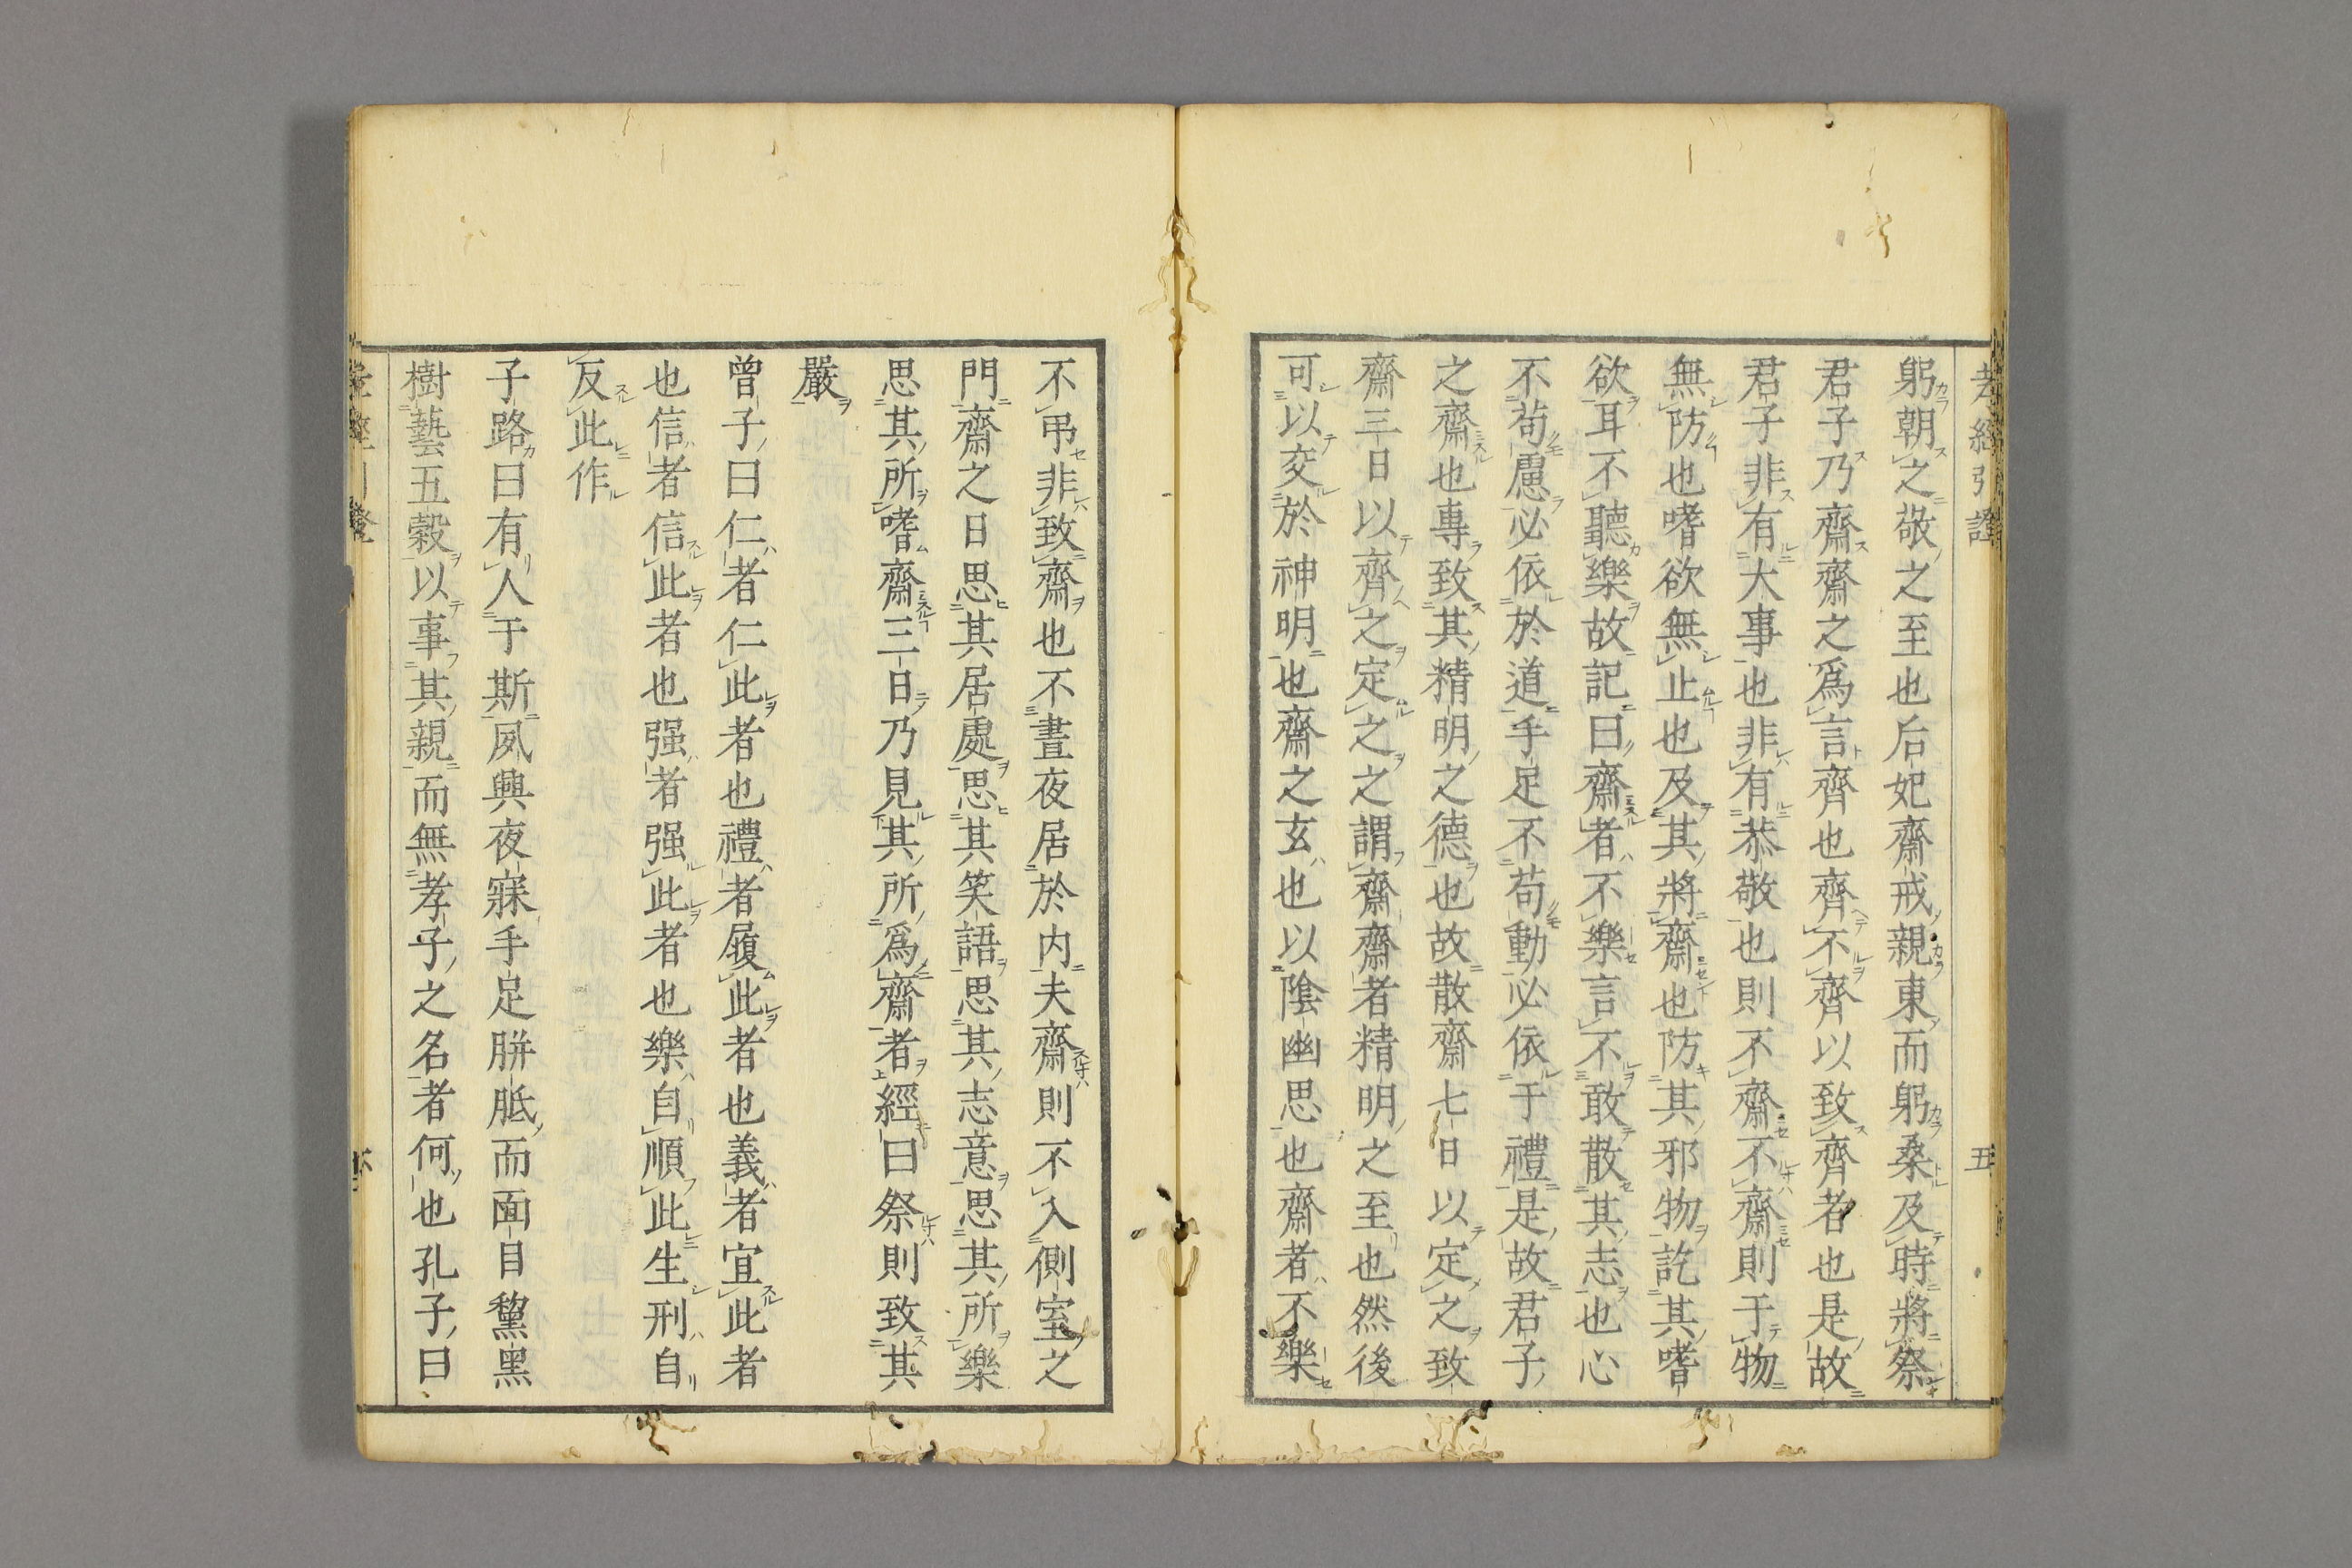 孝經引證
五
躬朝之敬之至也后妃齋戒親東而躬桑及時將祭
君子乃齋齋之爲言齊也齊不齊以致齊者也是故
君子非有大事也非有恭敬也則不齋不齋則于物
無防也嗜欲無止也及其將齋也防其邪物訖其嗜
欲耳不聽樂故記曰齋者不樂言不敢散其志也心
不苟慮必依於道手足不苟動必依于禮是故君子
之齋也專致其精明之德也故散齋七日以定之致
齋三日以齊之定之之謂齋齋者精明之至也然後
可以交於神明也齋之玄也以陰幽思也齋者不樂
不弔非致齋也不晝夜居於内夫齋則不入側室之
門齋之日思其居處思其笑語思其志意思其所樂
思其所嗜齋三日乃見其所爲齋者經曰祭則致其
嚴
曾子曰仁者仁此者也禮者履此者也義者宜此者
也信者信此者也强者强此者也樂自順此生刑自
反此作
子路曰有人于斯夙興夜寐手足胼胝而面目黧黑
樹藝五穀以事其親而無孝子之名者何也孔子曰